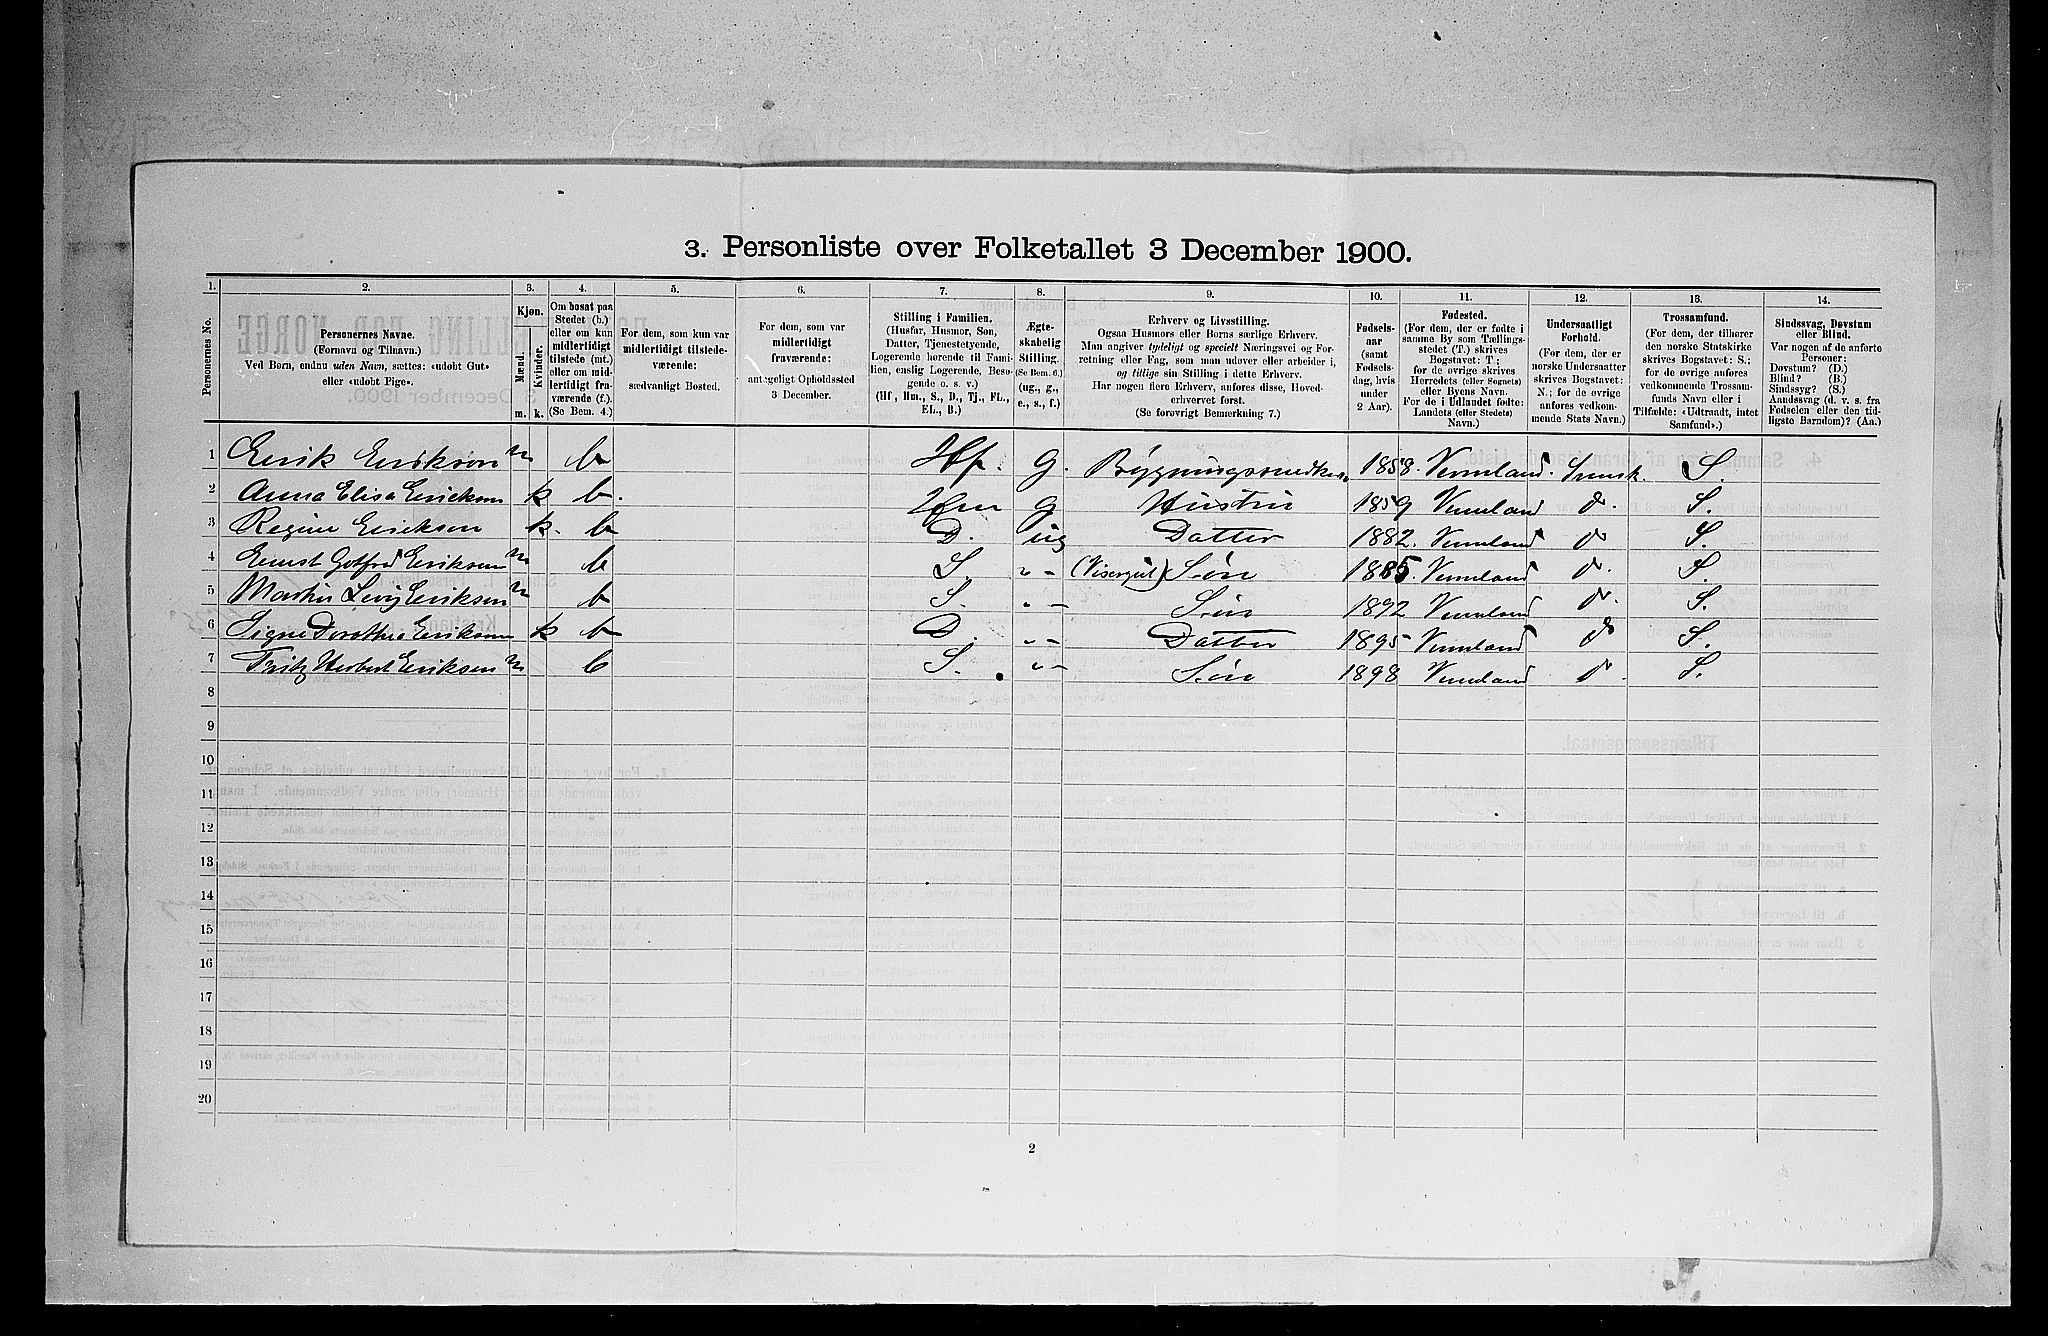 3. Personliste over Folketallet 3 December 1900.
1. 2. 3. 4. 5. 6. 7. 8. 9. 10. 11. 12. 13. 14.
Personernes No.
Personernes Navne.
(Fornavn og Tilnavn.)
Ved Børn, endnu uden Navn, sættes: «udøbt Gut»
eller «udøbt Pige».
Kjøn.
Mænd.
Kvinder.
m. k.
Om bosat paa
Stedet (b.)
eller om kun
midlertidigt
tilstede (mt.)
eller om mid-
lertidigt fra-
værende (f.).
(Se Bem. 4.)
For dem, som kun var
midlertidigt tilstede-
værende:
sædvanligt Bosted.
For dem, som var
midlertidigt
fraværende:
antageligt Opholdssted
3 December.
Stilling i Familien.
(Husfar, Husmor, Søn,
Datter, Tjenestetyende,
Logerende hørende til Fami-
lien, enslig Logerende, Besø-
gende o. s. v.)
(Hf, Hm., S., D., Tj., FL.,
EL., B.)
Ægte-
skabelig
Stilling.
(Se Bem. 6.)
(ug., g.,
e., s., f.)
Erhverv og Livsstilling.
Ogsaa Husmors eller Børns særlige Erhverv.
Man angiver tydeligt og specielt Næringsvei og For-
retning eller Fag, som man udøver eller arbeider i,
og tillige sin Stilling i dette Erhverv.
Har nogen flere Erhverv, anføres disse, Hoved-
erhvervet først.
(Se forøvrigt Bemerkning 7.)
Fødsels-
aar
(samt
Fødsels-
dag, hvis
under
2 Aar).
Fødested.
(For dem, der er fødte i
samme By som Tællings-
stedet (T.) skrives
Bogstavet: T.;
for de øvrige skrives
Herredets (eller Sognets)
eller Byens Navn.
For de i Udlandet fødte:
Landets (eller Stedets)
Navn.)
Undersaatligt
Forhold.
(For dem, der er
norske Undersaatter
skrives Bogstavet:
N.; for de øvrige
anføres vedkom-
mende Stats Navn.)
Trossamfund.
(For dem, der tilhører
den norske Statskirke
skrives Bogstavet: S.;
for de øvrige anføres
vedkommende Trossam-
funds Navn eller i
Tilfælde: «Udtraadt, intet
Samfund».)
Sindssvag, Døvstum
eller Blind.
Var nogen af de anførte
Personer:
Døvstum? (D.)
Blind? (B.)
Sindssyg? (S.)
Aandssvag (d. v. s. fra
Fødselen eller den tid-
ligste Barndom)? (Aa.)
1 Erik Erikson m b Hf. G. Bygningssnedker 1858. Vermland. Svensk. S.
2 Anna Elisa Erickson k b. Hm G Hustru 1859 Vermland do. S.
3 Regine Erickson k. b D. ug Datter 1882. Vermland do S.
4 Ernst Gotfred Erikson m b S „ – (Visergut) Søn 1885. Vermland do. S.
5 Martin Levy Eriksen m b S. „ – Søn 1892 Vermland do. S.
6 Signe Dorothea Erikson k b D. „ – Datter 1895 Vermland do S.
7 Fritz Herbert Eriksen m b S. „ – Søn 1898 Vermland do. S.
8
9
10
11
12
13
14
15
16
17
18
19
20
2